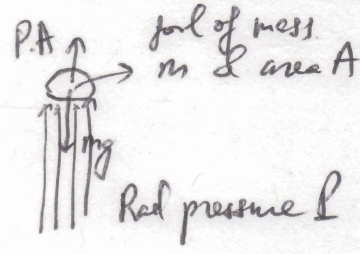 P.A
foil of mass
m & area A
mg
Rad pressure P